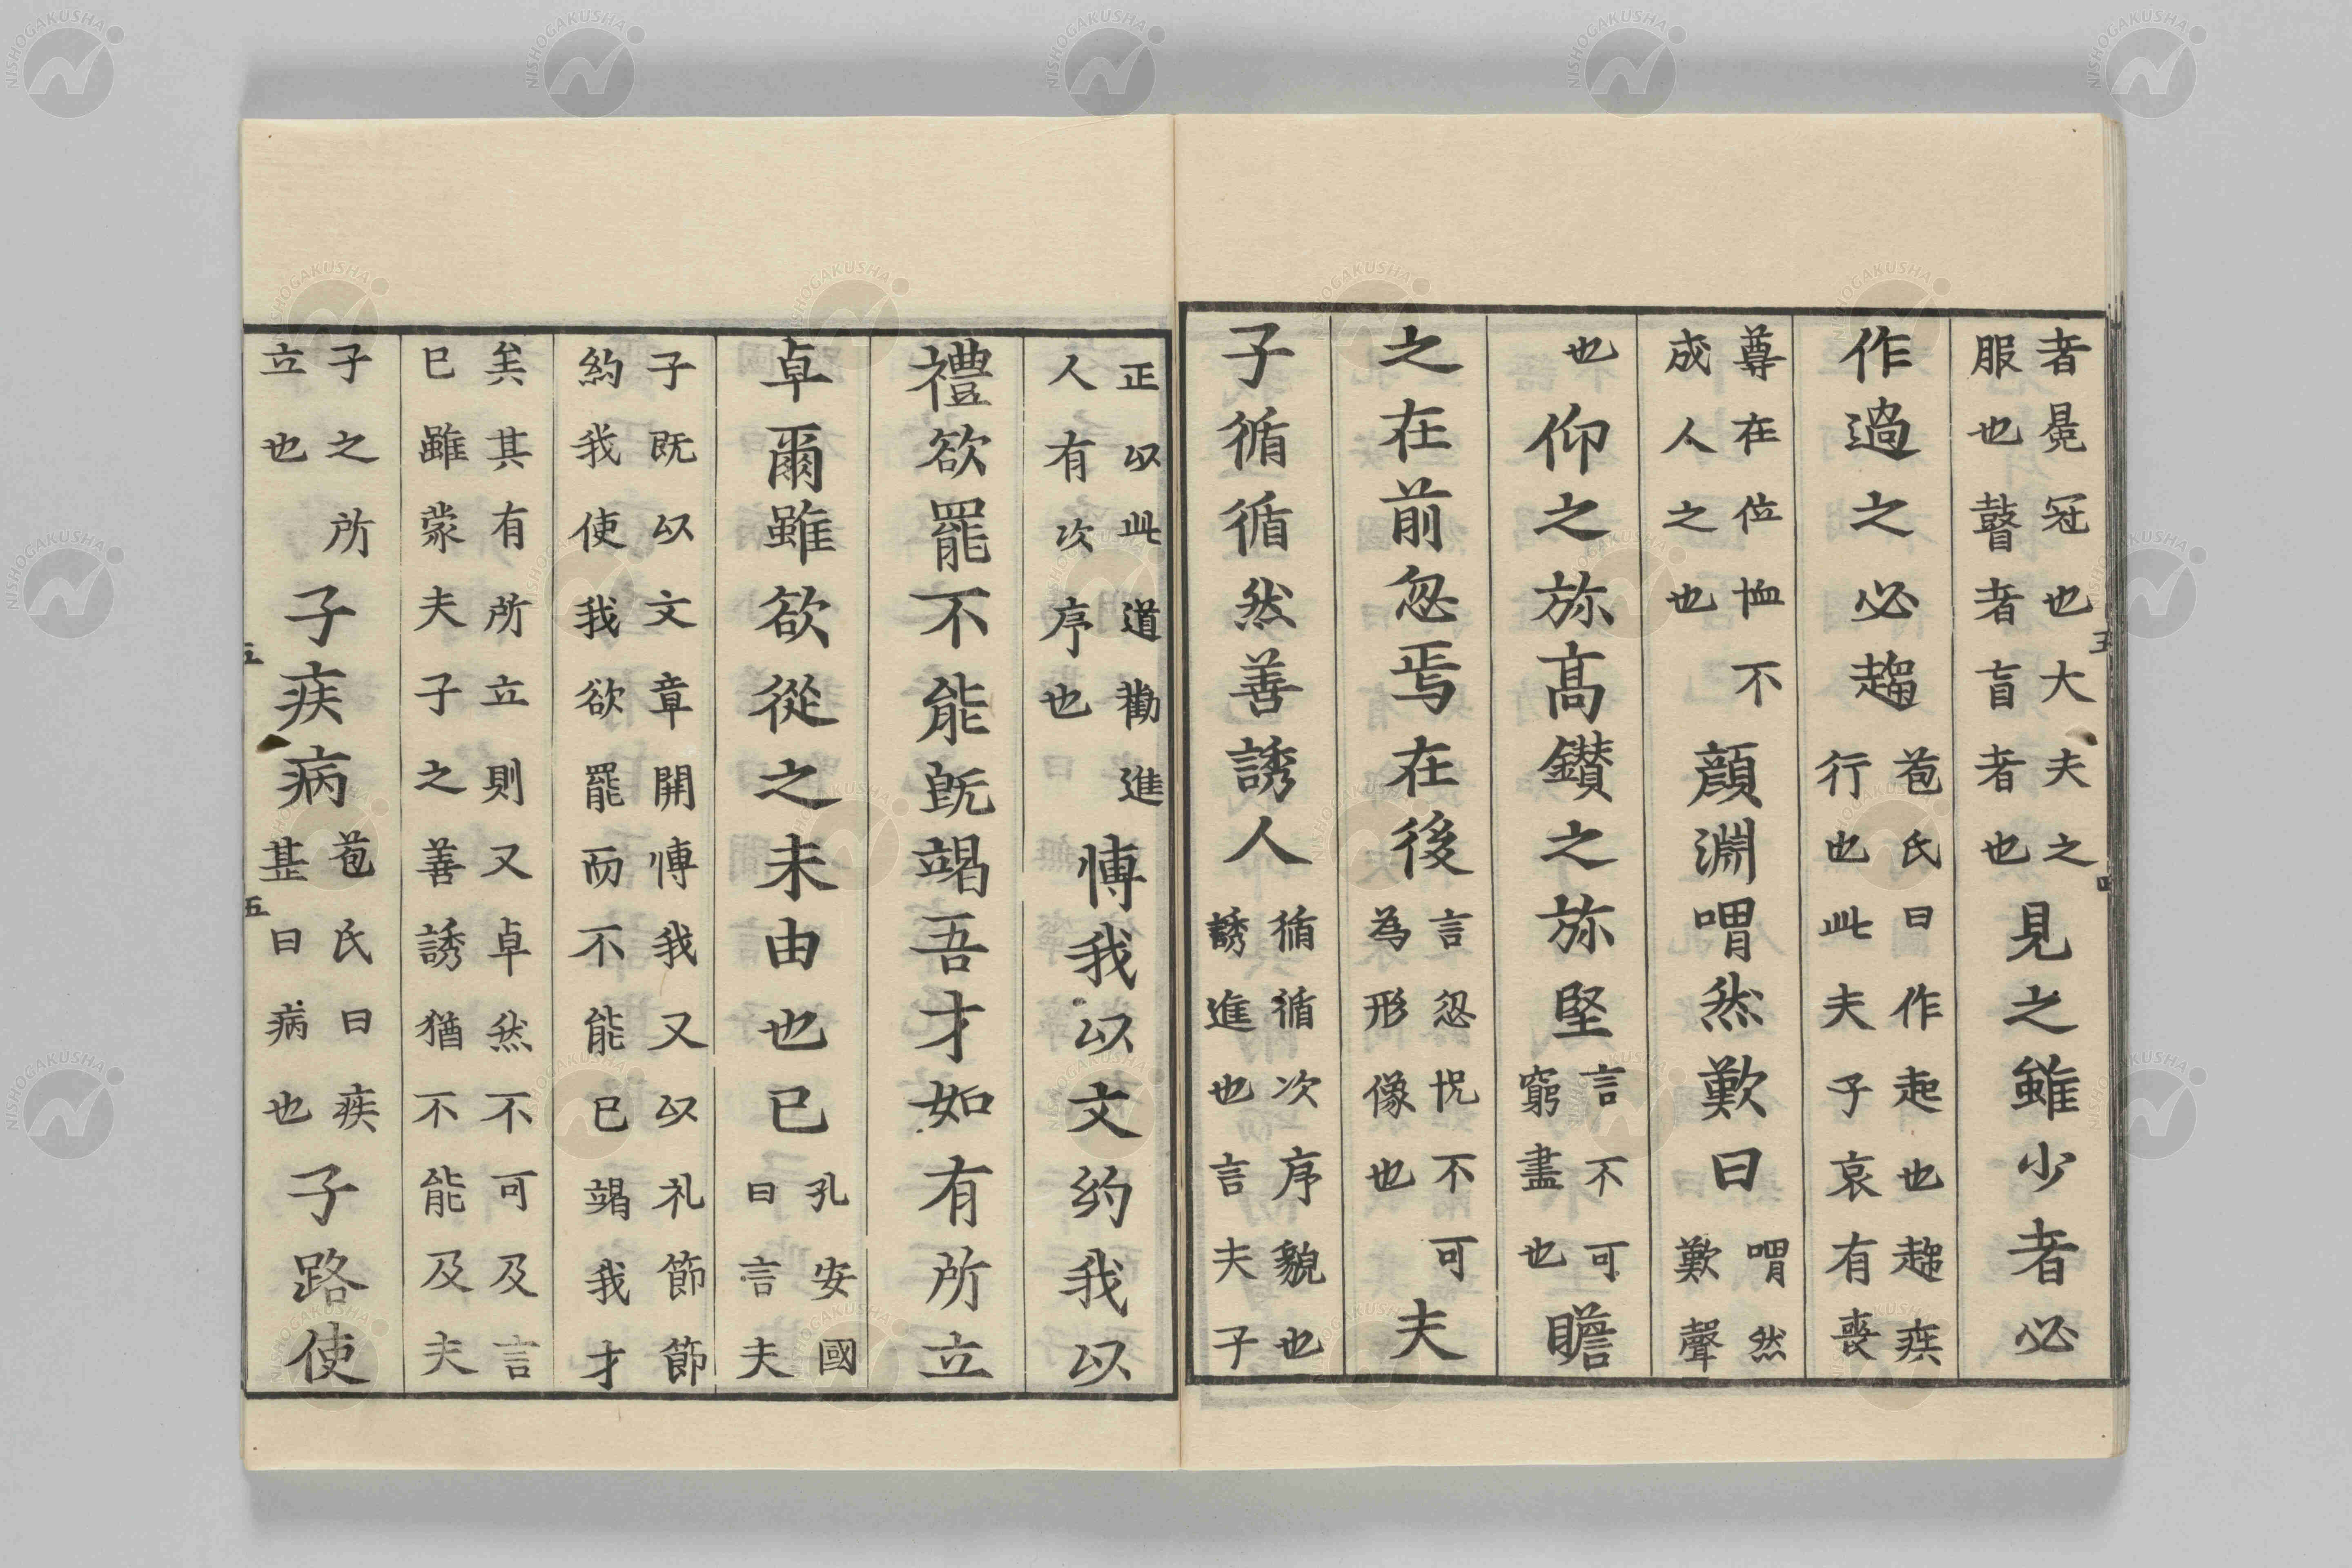 者冕冠也大夫之服也瞽者盲者也見之雖少者必
作過之必趨苞氏曰作起也趨疾行也此夫子哀有喪
尊在位恤不成人之也顔淵喟然歎曰喟然歎聲
也仰之旀髙鑚之旀堅言不可窮盡也瞻
之在前忽焉在後言忽怳不可為形像也夫
子循循然善誘人循循次序貌也誘進也言夫子
正以此道勸進人有次序也博我以文約我以
禮欲罷不能既竭吾才如有所立
卓爾雖欲從之未由也已孔安國曰言夫
子既以文章開博我又以礼節節約我使我欲罷而不能已竭我才
矣其有所立則又卓然不可及言已雖蒙夫子之善誘猶不能及夫
子之所立也子疾病苞氏曰疾甚曰病也子路使
五
五
NISHOGAKUSHA